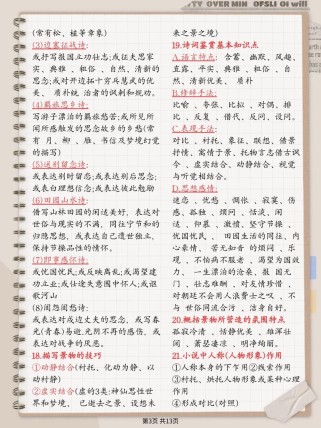 (常有松、松菁章巢)
(3)边塞征战诗:
或抒写报国立功壮志;或征夫思家
实、典雅、粗俗、自然、清新的
思念;或对开边拓土穷兵黩武的优
美、质朴统治者的讽刺和规劝。
(4)羁旅思乡诗:
写游子漂泊的羁旅愁苦;或所见所
闻所感触发的思念故乡的乡愁(常
有月、柳、雁、书信及梦境幻觉
的描写)
(5)送别留念诗:
或表达别时留恋;或表达别后思念;
或表白理想信念;或表达彼此勉励
(6)田园山水诗:
借写山林田园的闲适美好,表达对
世俗与现实的不满、同往宁节和的
归隐思想,或表达自己遗世独立、
保持节操高性的情怀。
(7)即事感怀诗:
或忧国忧民;或反映离乱;或渴望建
功立业;或仕途失意图中怀人;或讴
歌河山
(8)闺怨闲愁诗:
或表达对戍边丈夫的思念,或写春
光(青春)易逝,见所不再的感伤、或
表达对战争的厌恶。
18.描写景物的技巧
①动静结合(衬托、化动为静、以
动衬静)
②虚实结合(虚的3类:神仙恶性世
界和梦境、已逝去之景、设想未
来之景境)
19.诗词鉴赏基本知识点
A.语言特点:含蓄、幽默、风趣、
直露、平实、典雅、粗俗、自
然、清新优美、质朴
B.修辞手法:
比喻、夸张、比拟、对偶、排
比、反复、借代、反问、设问。
C.表现手法:
对比、衬托、象征、联想、借景
抒情、寓情于景、托物言志借古讽
今、虚实结合、动静结合、视觉
与听觉相结合。
D.思想感情:
迷恋、忧愁、惆怅、寂寞、伤
感、孤独、烦闷、恬淡、闲
适、仰慕、激愤、坚守节操、
忧国忧民、田园生活的同往、内
心豪情、苦无知音的烦闷、乐
观、不怕病不服老、渴望为国效
力、一生漂泊的沧桑、报国无
门、壮志难酬、对友情珍惜、
对朝廷不会用人浪费士之叹、不
与世俗同流合污、洁身自好。
20.概括景物所营造的氛围特点
孤寂冷清、恬静优美、雄浑壮
阔、萧瑟凄凉、明净绚丽。
21.小说中人称(人物形象)作用
①人称本身的下乍用②线索作用
③衬托、烘托人物形象或某种心理
作用
④形成对比(对照)
第3页 共13页